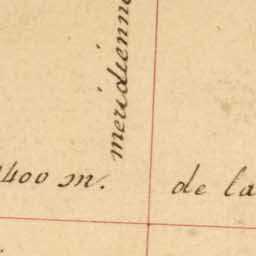 méridienne
400 m. de la